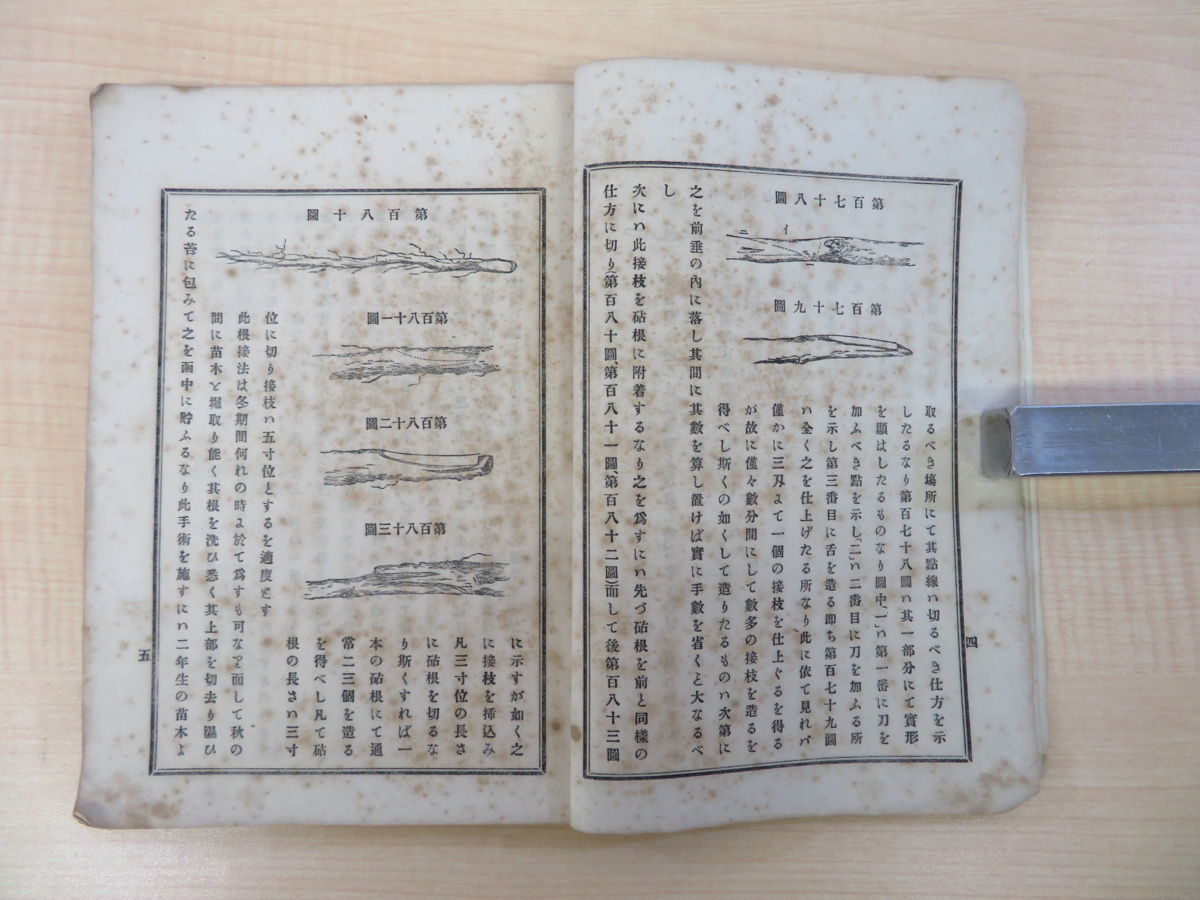 第百七十八圖
イ
ニ
第百七十九圖
取るべき塲所にて其點線ハ切るべき仕方を示
したるなり第百七十八圖ハ其一部分にて實形
を顯はしたるものなり圖中「一」ハ第一番に刀を
加ふべき點を示し「二」ハ二番目に刀を加ふる所
を示し第三番目に舌を造る即ち第百七十九圖
ハ全く之を仕上げたる所なり此に依て見れバ
僅かに三刄よて一個の接枝を仕上ぐるを得る
が故に僅々數分間にして數多の接枝を造るを
得べし斯くの如くして造りたるものハ次第に
之を前垂の內に落し其間に其數を算し置けば實に手數を省くと大なるべ
し
次にハ此接枝を砧根に附着するなり之を爲すにハ先づ砧根を前と同樣の
仕方に切り(第百八十圖、第百八十一圖、第百八十二圖)而して後第百八十三圖
四
第百八十圖
第百八十一圖
第百八十二圖
第百八十三圖
に示すが如く之
に接枝を揷込み
凡三寸位の長さ
に砧根を切るな
り斯くすれば一
本の砧根にて通
常二三個を造る
を得べし凡て砧
根の長さハ三寸
位に切り接枝ハ五寸位とするを適度とす
此根接法は冬期間何れの時よ於て爲すも可なりと而して秋の
間に苗木と堀取り能く其根を洗ひ悉く其上部を切去り濕ひ
たる苔に包みて之を函中に貯ふるなり此手術を施すにハ二年生の苗木よ
五